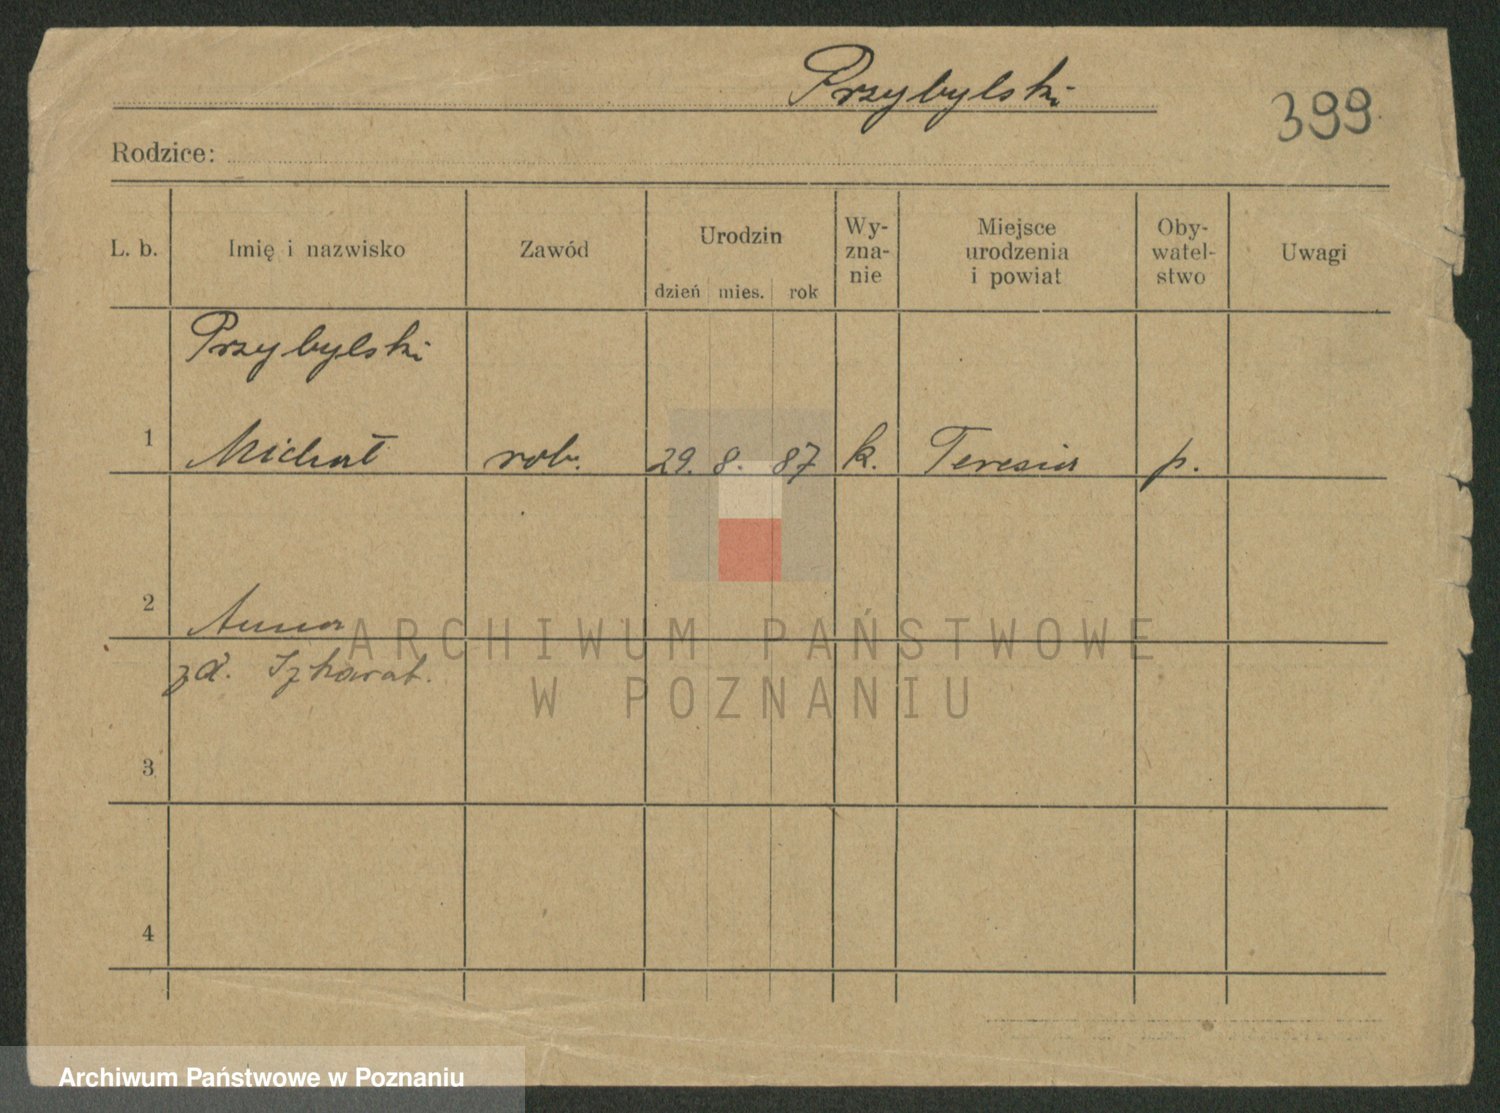 Przybylski
399
Rodzice:
L. b. Imię i nazwisko Zawód Urodzin dzień mies. rok Wy-zna-nie Miejsce urodzenia i powiat Oby-watel-stwo Uwagi
Przybylski
1 Michał rob. 29. 8. 87 k. Teresin p.
2 Anna
zd. Szkarat.
3
4
ARCHIWUM PAŃSTWOWE
W POZNANIU
Archiwum Państwowe w Poznaniu